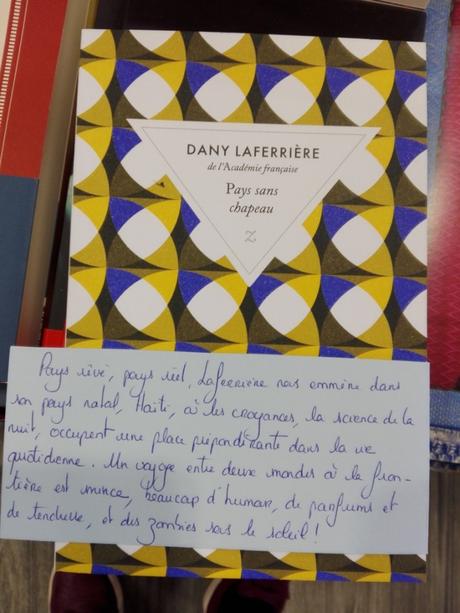 DANY LAFERRIÈRE
de l'Académie française
Pays sans
chapeau
Z
Pays rêvé, pays réel, Laferrière nous emmène dans
son pays natal, Haïti, où les croyances, la science de la
nuit, occupent une place prépondérante dans la vie
quotidienne. Un voyage entre deux mondes où la fron-
tière est mince, beaucoup d'humour, de parfums et
de tendresse, et des zombies sous le soleil !